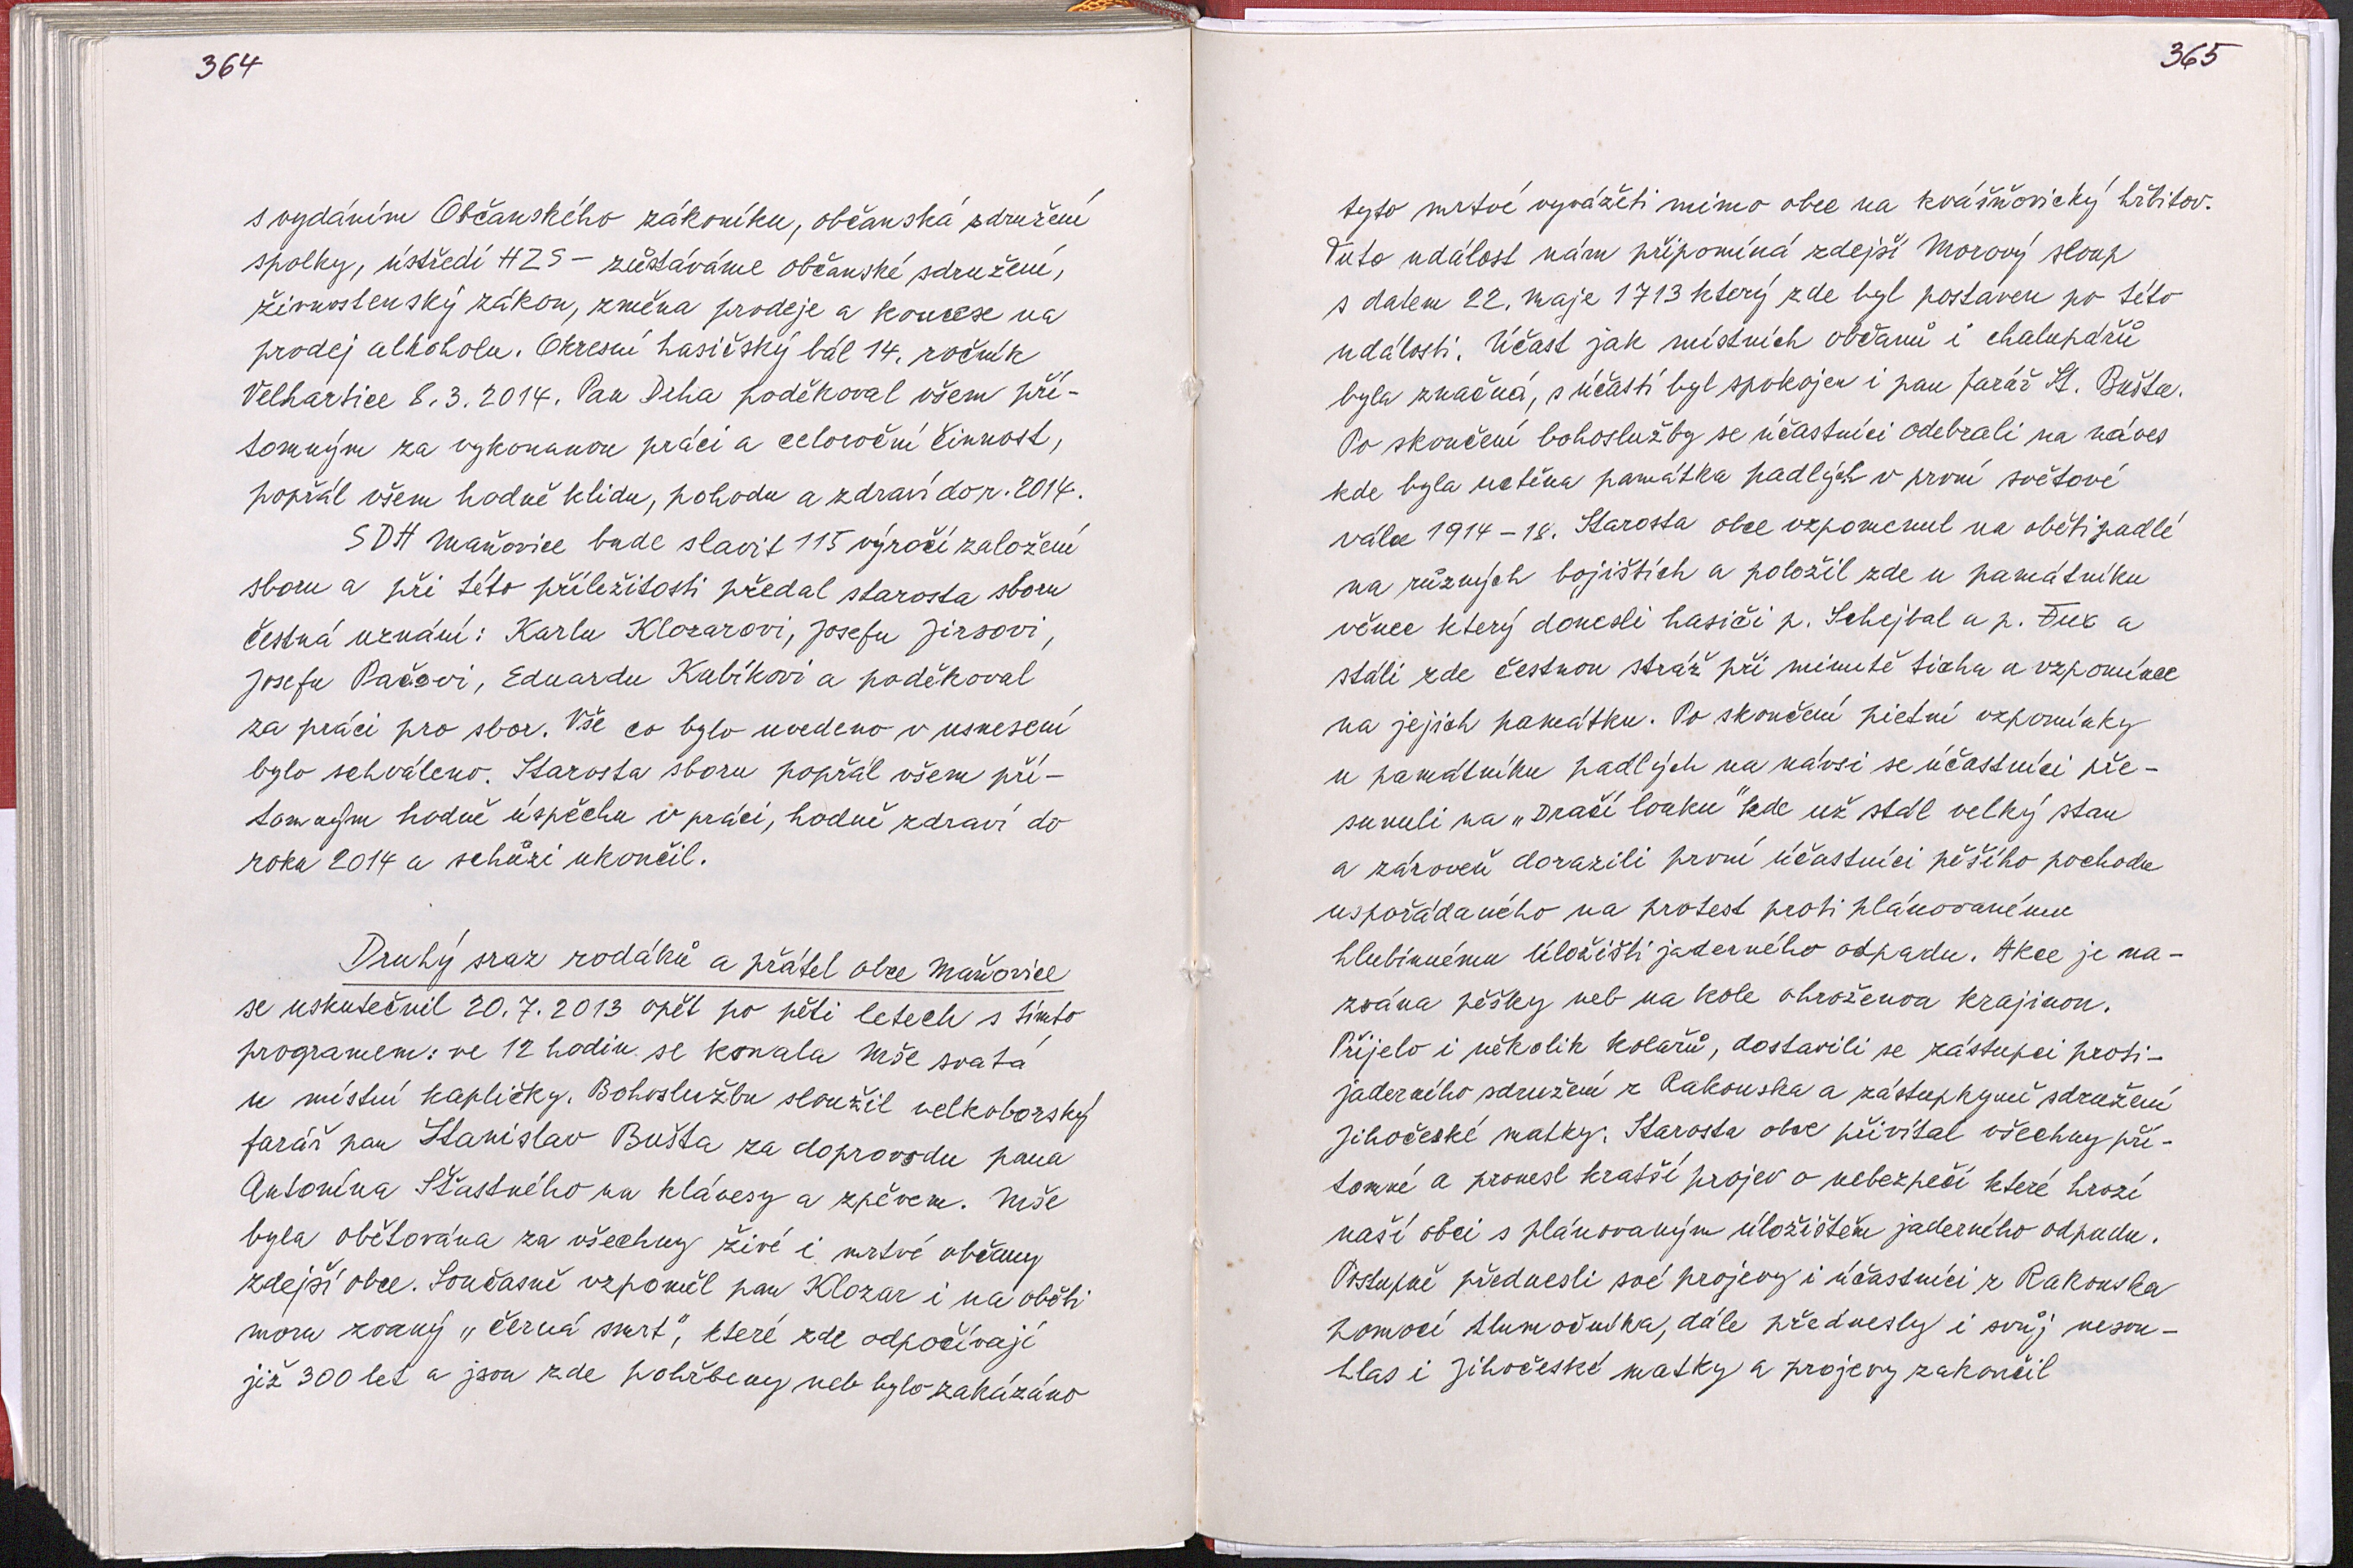 364
s vydáním Občanského zákoníku, občanská sdružení
spolky, ústředí HZS – zůstáváme občanské sdružení,
živnostenský zákon, změna prodeje a koncese na
prodej alkoholu. Okresní hasičský bál 14. ročník
Velhartice 8.3.2014. Pan Drha poděkoval všem pří-
tomným za vykonanou práci a celoroční činnost,
popřál všem hodně klidu, pohodu a zdraví do r. 2014.
SDH Maňovice bude slavit 115 výročí založení
sboru a při této příležitosti předal starosta sboru
čestná uznání: Karlu Klozarovi, Josefu Jirsovi,
Josefu Pačovi, Eduardu Kubíkovi a poděkoval
za práci pro sbor. Vše co bylo uvedeno v usnesení
bylo schváleno. Starosta sboru popřál všem pří-
tomným hodně úspěchu v práci, hodně zdraví do
roku 2014 a schůzi ukončil.
Druhý sraz rodáků a přátel obce Maňovice
se uskutečnil 20.7.2013 opět po pěti letech s tímto
programem: ve 12 hodin se konala Mše svatá
u místní kapličky. Bohoslužbu sloužil velkoborský
farář pan Stanislav Bušta za doprovodu pana
Antonína Šťastného na klávesy a zpěvem. Mše
byla obětována za všechny živé i mrtvé občany
zdejší obce. Současně vzpoměl pan Klozar i na oběti
moru zvaný „černá smrt", které zde odpočívají
již 300 let a jsou zde pohřbeny neb bylo zakázáno
365
tyto mrtvé vyvážeti mimo obec na kvášňovický hřbitov.
Tuto událost nám připomíná zdejší Morový sloup
s datem 22. Maje 1713 který zde byl postaven po této
události. Účast jak místních občanů i chalupářů
byla značná, s účastí byl spokojen i pan farář St. Bušta.
Po skončení bohoslužby se účastníci odebrali na náves
kde byla uctěna památka padlých v první světové
válce 1914 – 18. Starosta obce vzpomenul na oběti padlé
na různých bojištích a položil zde u památníku
věnec který donesli hasiči p. Schejbal a p. Fux a
stáli zde čestnou stráž při minutě ticha a vzpomínce
na jejich památku. Po skončení pietní vzpomínky
u památníku padlých na návsi se účastníci pře-
sunuli na „Dračí louku" kde už stál velký stan
a zároveň dorazili první účastníci pěšího pochodu
uspořádaného na protest proti plánovanému
hlubinnému úložišti jaderného odpadu. Akce je na-
zvána pěšky neb na kole ohroženou krajinou.
Přijelo i několik kolařů, dostavili se zástupci proti-
jaderního sdružení z Rakouska a zástupkyně sdružení
Jihočeské matky. Starosta obce přivítal všechny pří-
tomné a pronesl kratší projev o nebezpečí které hrozí
naší obci s plánovaným úložištěm jaderného odpadu.
Postupně přednesli své projevy i účastníci z Rakouska
pomocí tlumočníka, dále přednesly i svůj nesou-
hlas i Jihočeské matky a projevy zakončil